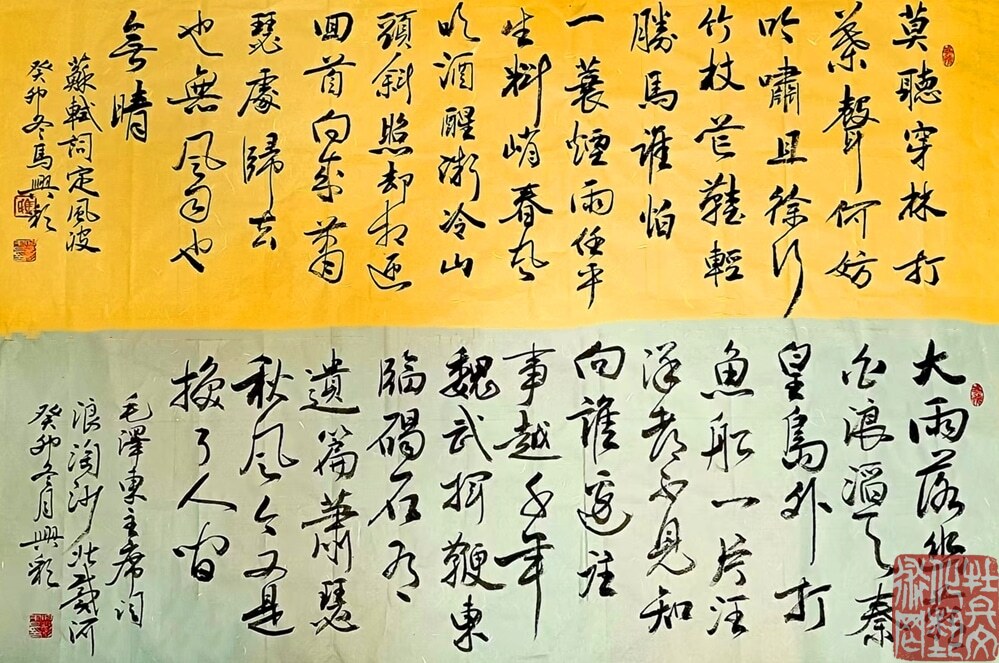 莫聽穿林打
葉聲何妨
吟嘯且徐行
竹杖芒鞋輕
勝馬誰怕
一蓑煙雨任平
生料峭春風
吹酒醒微冷山
頭斜照却相迎
回首向來蕭
瑟處歸去
也無風雨也
無晴
蘇軾詞定風波
癸卯冬馬興
大雨落幽燕
白浪滔天秦
皇島外打
魚船一片汪
洋都不見知
向誰邊往
事越千年
魏武揮鞭東
臨碣石有
遺篇蕭瑟
秋風今又是
換了人間
毛澤東主席詞
浪淘沙北戴河
癸卯冬月興